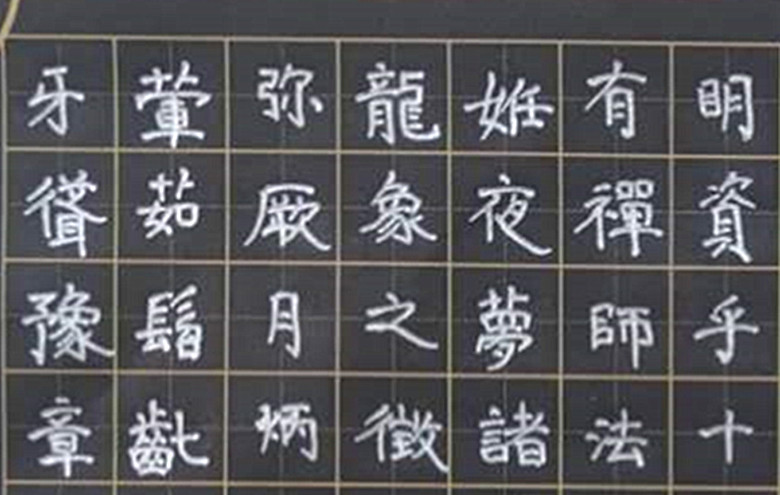 明資乎十
有禪師法
姙夜夢諸
龍象之徵
弥厥月炳
葷茹髫齔
牙聳豫章